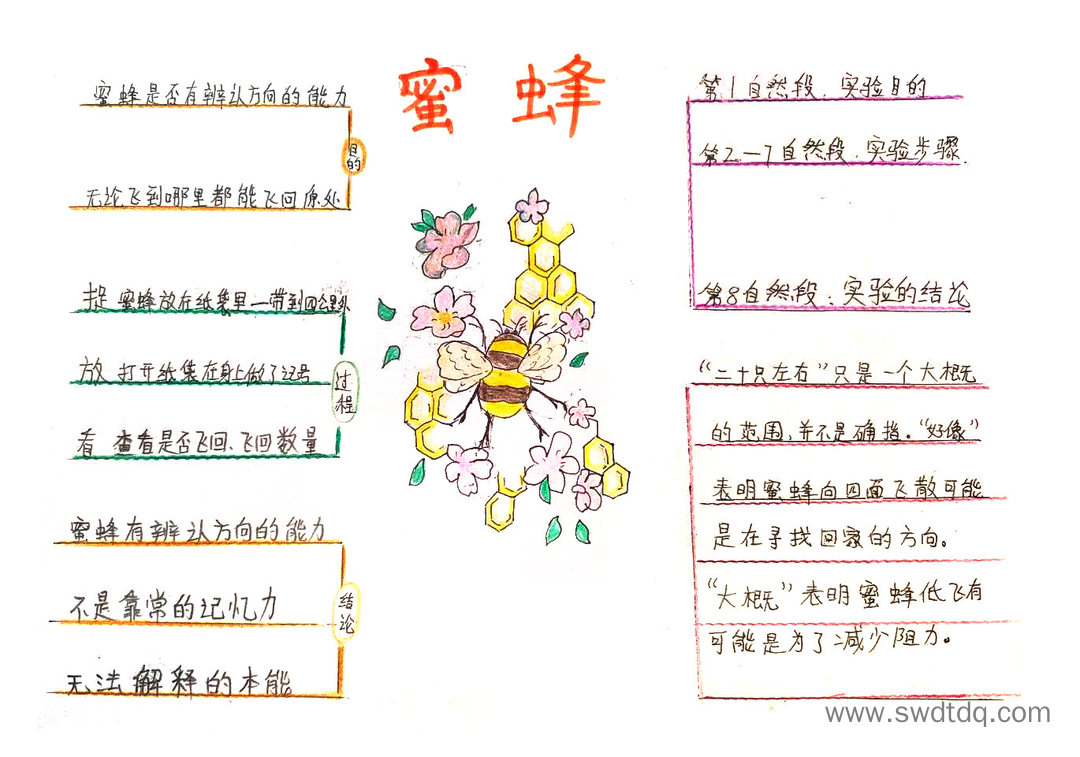 蜜蜂
蜜蜂是否有辨认方向的能力
目的
无论飞到哪里都能飞回原处
捉 蜜蜂放在纸袋里—带到四公里外
放 打开纸袋在身上做了记号
过程
看 查看是否飞回、飞回数量
蜜蜂有辨认方向的能力
不是靠常的记忆力
结论
无法解释的本能
第1自然段:实验目的
第2—7自然段:实验步骤
第8自然段:实验的结论
“二十只左右”只是一个大概
的范围,并不是确指。“好像”
表明蜜蜂向四面飞散可能
是在寻找回家的方向。
“大概”表明蜜蜂低飞有
可能是为了减少阻力。
www.swdtdq.com